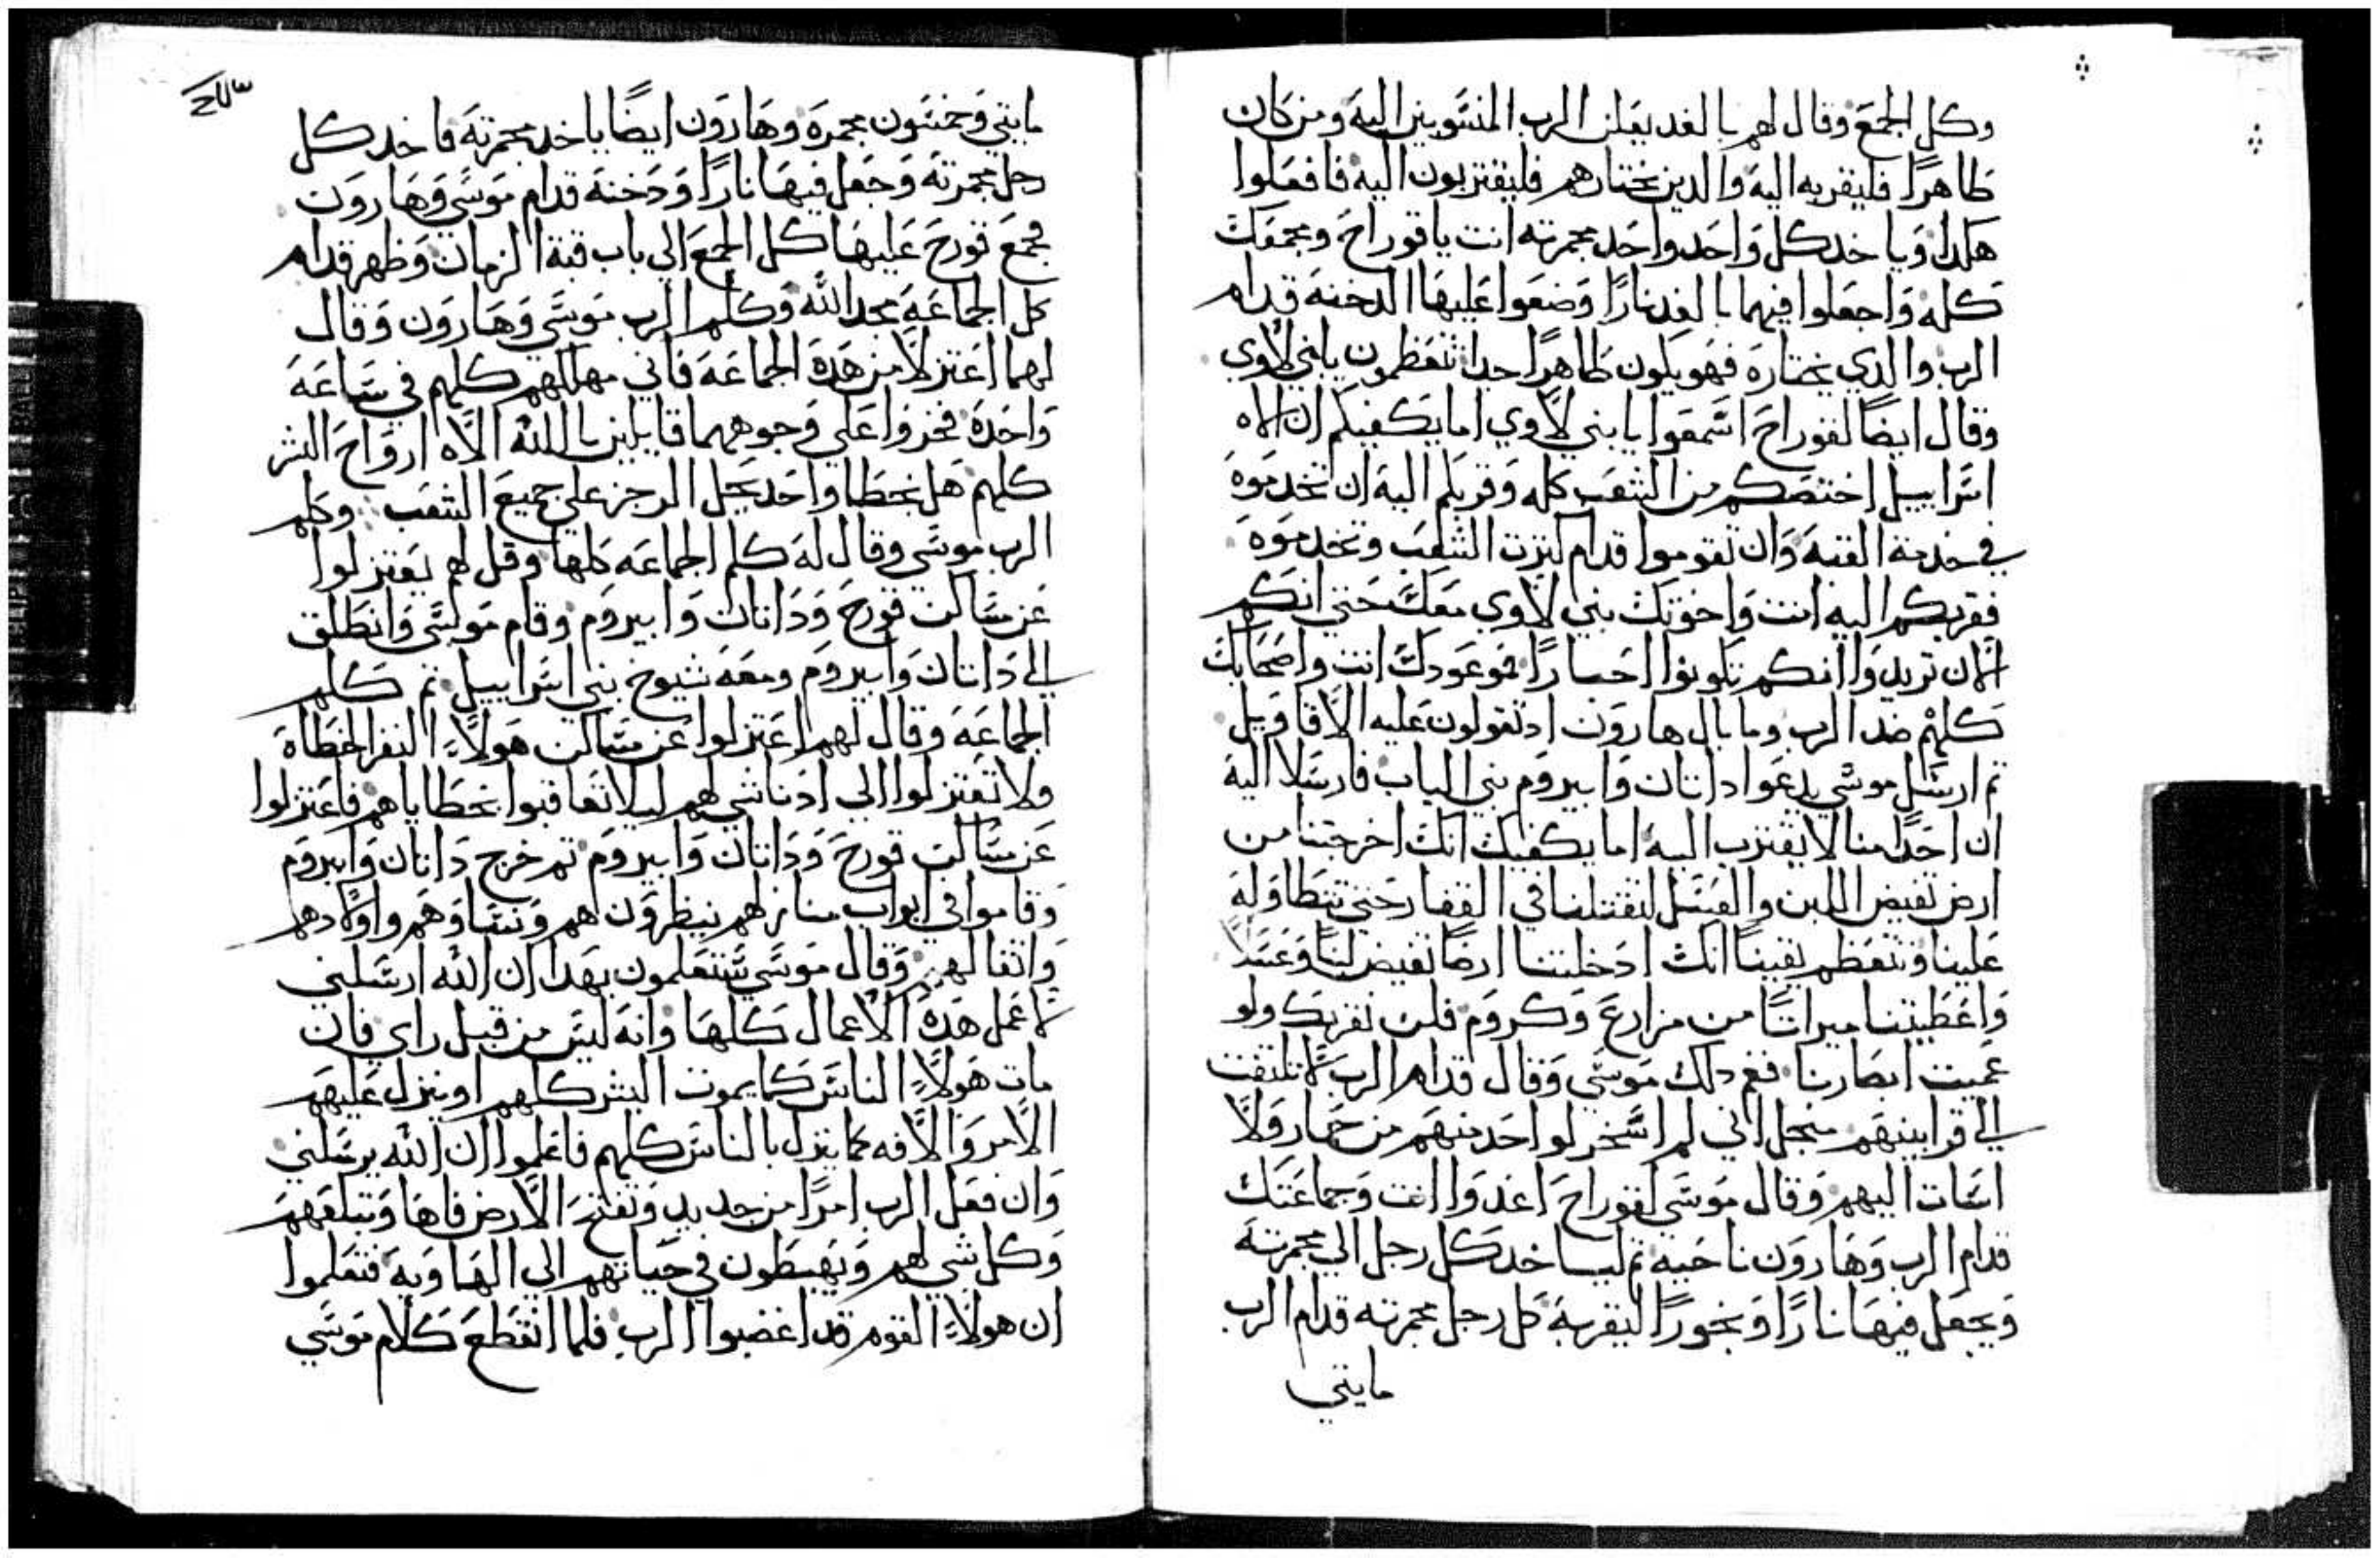 وكل الجمع وقال لهم بالغد يعلن الرب المنسوبين اليه ومن كان
طاهرًا فليقربه اليه والدين يختارهم فليقتربون اليه فافعلوا
هكدا وياخد كل واحد واحد مجمرته انت ياقوراح ومجمعك
كله واجعلوا فيهما بالغد نارًا وضعوا عليها الدخنه قدام
الرب والدي يختاره فهو يكون طاهرًا جدا تتعظمون يابني لاوي
وقال ايضًا لقوراح اسمعوا يابني لاوي اما يكفيكم ان الاه
اسراييل اختصكم من الشعب كله وقربكم اليه ان تخدموه
في خدمة القبه وان تقوموا قدام كنزت الشعب وتخدموه
فقربكم اليه انت واخوتك بني لاوي معك حتي انكم
الان تريدوا انكم تكونوا احبارًا فموعودك انت واصحابك
كلهم ضد الرب وما بال هارون اد تقولون عليه الاقاويل
تم ارسل موسي يدعوا داتان وابيروم بني الياب فارسلا اليه
ان احدًا منا لا يقترب اليه اما يكفيك انك اخرجتنا من
ارض تفيض اللبن والعسل لتقتلنا في القفار حتي تتطاوله
علينا وتتعظم يقينًا انك ادخلتنا ارضًا تفيض لبنًا وعسلًا
واعطيتنا ميراتًا من مزارع وكروم فلن نقربك ولو
عميت ابصارنا فغم دلك موسي وقال قدام الرب لا تلتفت
الي قرابينهم منجل اني لم اسخر لواحد منهم من حمار ولا
اسات اليهم وقال موسي لقوراح اغدوا انت وجماعتك
قدام الرب وهارون ناحيه تم لياخد كل رجل الي مجمرته
ويجعل فيها نارًا وبخورًا ليقربه كل رجل مجمرته قدام الرب
مايتي
مايتي وخمسون مجمره وهارون ايضًا ياخد مجمرته فاخد كل
رجل مجمرته وجعل فيها نارًا ودخنه قدام موسي وهارون
فجمع قورح عليها كل الجمع الي باب قبة الزمان وظهر قدام
كل الجماعه مجد الله وكلم الرب موسي وهارون وقال
لهما اعتزلا من هده الجماعه فاني مهلكهم كلهم في ساعه
واحده فخروا علي وجوههما قايلين يا الله الاه ارواح البشر
كلهم هل يخطا واحد يحل الرجز علي جميع الشعب وكلم
الرب موسي وقال له كلم الجماعه كلها وقل لهم يعتزلوا
عن مساكن قورح وداتان وابيروم وقام موسي وانطلق
الي داتان وابيروم ومعه شيوخ بني اسراييل تم كلم
الجماعه وقال لهم اعتزلوا عن مساكن هولاء النفر الخطاه
ولا تعتزلوا الي ادنا شي لهم ليلا تعاقبوا بخطاياهم فاعتزلوا
عن مساكن قورح وداتان وابيروم تم خرج داتان وابيروم
وقاموا في ابواب منازلهم ينظرون هم ونساوهم واولادهم
واتقالهم وقال موسي ستعلمون بهدا ان الله ارسلني
لاعمل هده الاعمال كلها وانه ليس من قبل راي فان
مات هولاء الناس كما يموت البشر كلهم او ينزل عليهم
الامر والافه كما ينزل بالناس كلهم فاعلموا ان الله يرسلني
وان فعل الرب امرًا من جديد وتفتح الارض فاها وتبلعهم
وكل شي لهم ويهبطون في حياتهم الي الهاويه فتعلموا
ان هولاء القوم قد اغضبوا الرب فلما انقطع كلام موسي